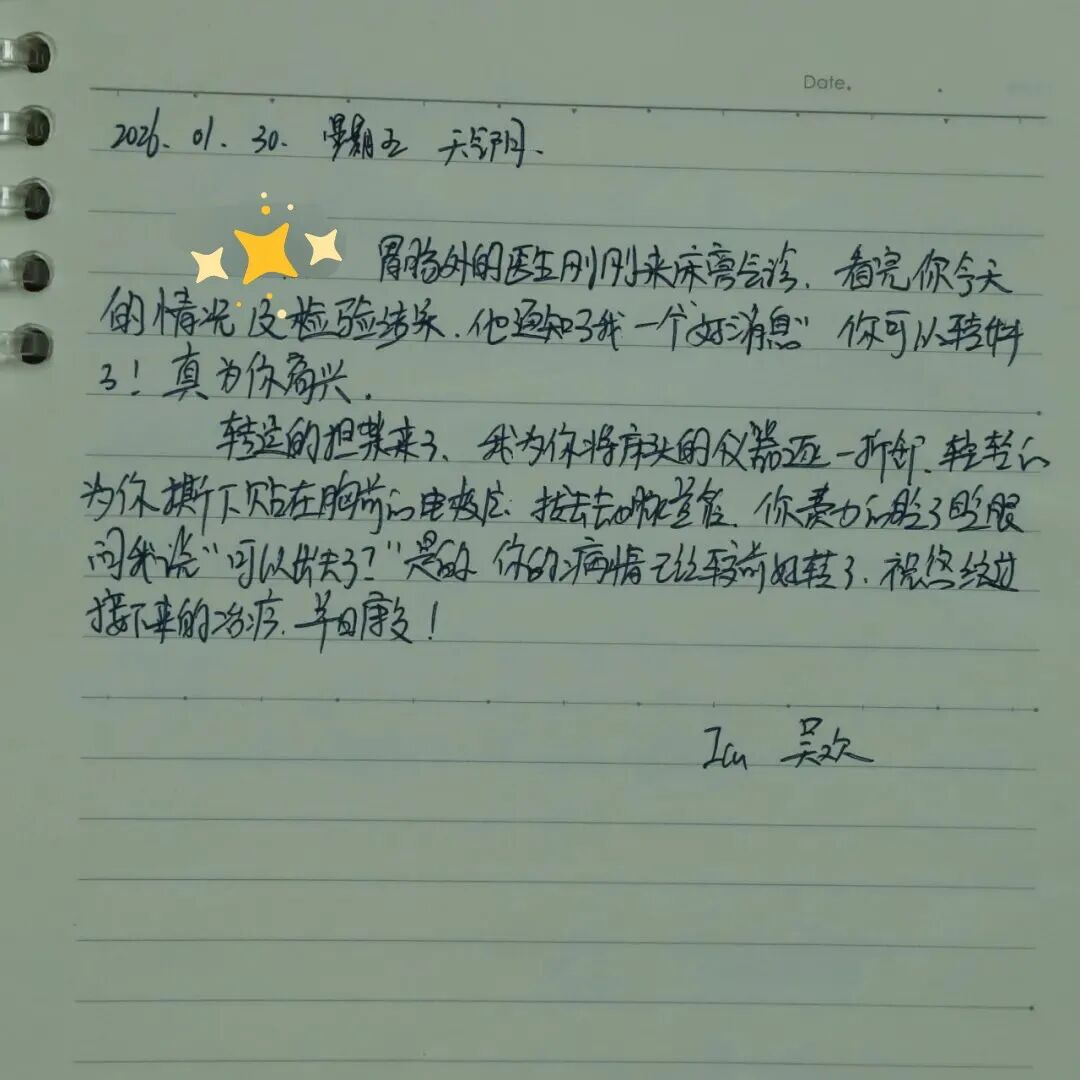 Date.
2026.01.30. 星期五 天气阴.
胃肠外的医生刚刚来床旁会诊.看完你今天
的情况及检验结果.他通知了我一个“好消息”你可以转科
了!真为你高兴.
转运的担架来了、我为你将床头的仪器逐一拆卸.轻轻的
为你撕下贴在胸前的电极片.拔去动脉置管.你费力的眨了眨眼
问我说“可以出去了?”是的 你的病情已经较前好转了.祝您经过
接下来的治疗.早日康复!
Icu 吴欢